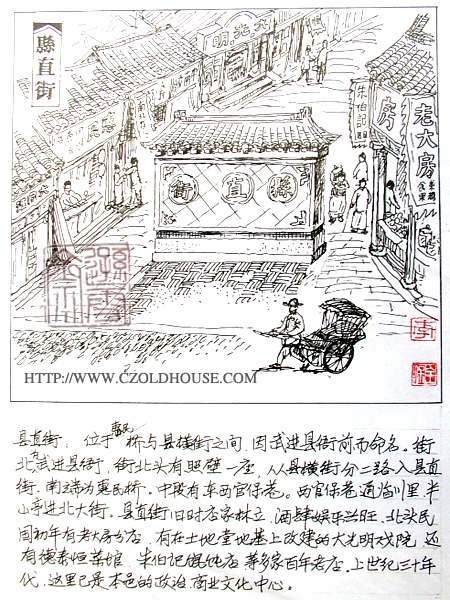 縣直街
大光明
縣直街
朱伯記餛
房
老大房
HTTP://WWW.CZOLDHOUSE.COM
县直街：位于惠民桥与县横街之间，因武进县衙前而命名。街
北为武进县衙，街北头有照壁一座，从县横街分二路入县直
街．南端为惠民桥．中段有东西官保巷。西官保巷通临川里．半
山亭进北大街。县直街旧时店家林立，酒肆娱乐兴旺．北头民
国初年有老大房分店，有在土地堂地基上改建的大光明戏院，还
有德泰恒菜馆、朱伯记馄饨店等多家百年老店．上世纪三十年
代，这里已是本邑的政治．商业文化中心。